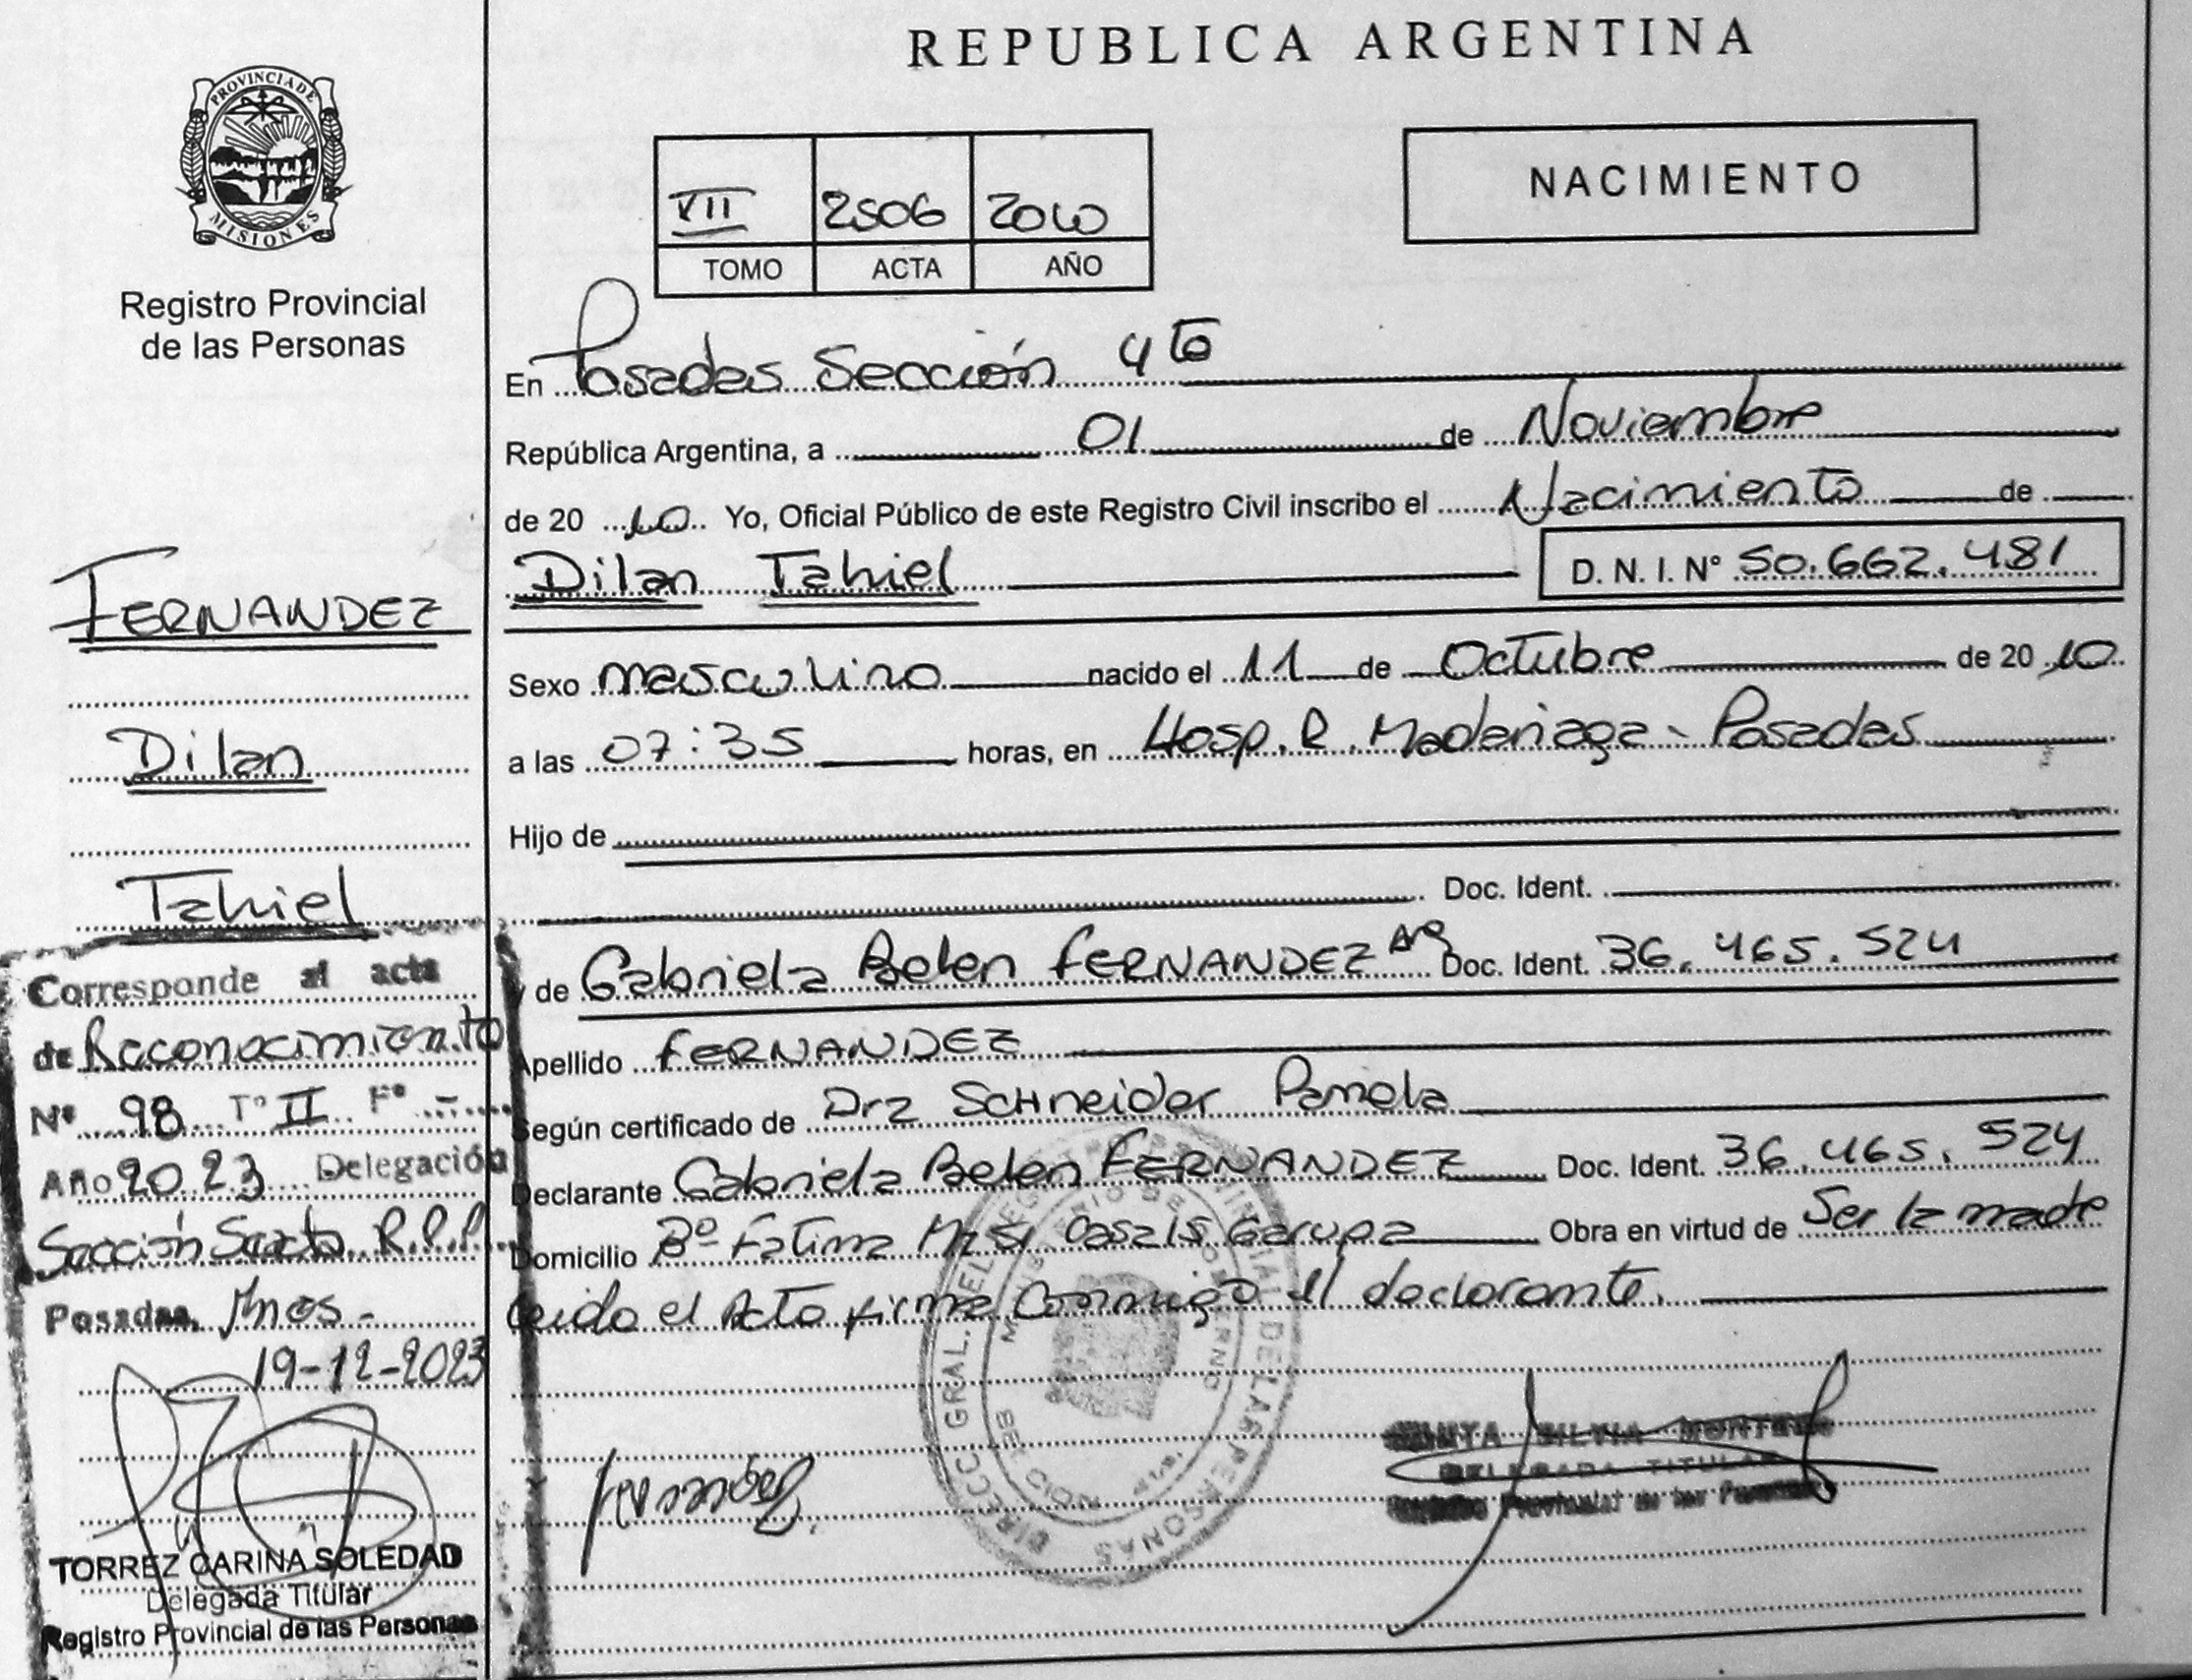 REPUBLICA ARGENTINA
PROVINCIA DE
MISIONES
Registro Provincial
de las Personas
NACIMIENTO
VII 2506 2010
TOMO ACTA AÑO
En Posadas Sección 4ta
República Argentina, a 01 de Noviembre
de 20 10 Yo, Oficial Público de este Registro Civil inscribo el Nacimiento de
Dilan Tahiel D. N. I. N° 50.662.481
Sexo masculino nacido el 11 de Octubre de 20 10
a las 07:35 horas, en Hosp. R. Madariaga - Posadas
Hijo de
Doc. Ident.
y de Gabriela Belen FERNANDEZ Arg Doc. Ident. 36.465.524
Apellido FERNANDEZ
Según certificado de Dra Schneider Pamela
Declarante Gabriela Belen FERNANDEZ Doc. Ident. 36.465.524
Domicilio B° Fatima Casa 15 Garupa Obra en virtud de Ser la madre
Leido el Acta firma Conmigo el declarante.
FERNANDEZ
Dilan
Tahiel
Corresponde al acta
de Reconocimiento
N° 98 T° II F° -
Año 2023 Delegación
Sección Sexta R.P.P.
Posadas, Mnes -
19-12-2023
TORREZ CARINA SOLEDAD
Delegada Titular
Registro Provincial de las Personas
DIRECC. GRAL. DEL REGISTRO PROVINCIAL DE LAS PERSONAS
MINISTERIO DE GOBIERNO
SILVIA
DELEGADA TITULAR
Registro Provincial de las Personas